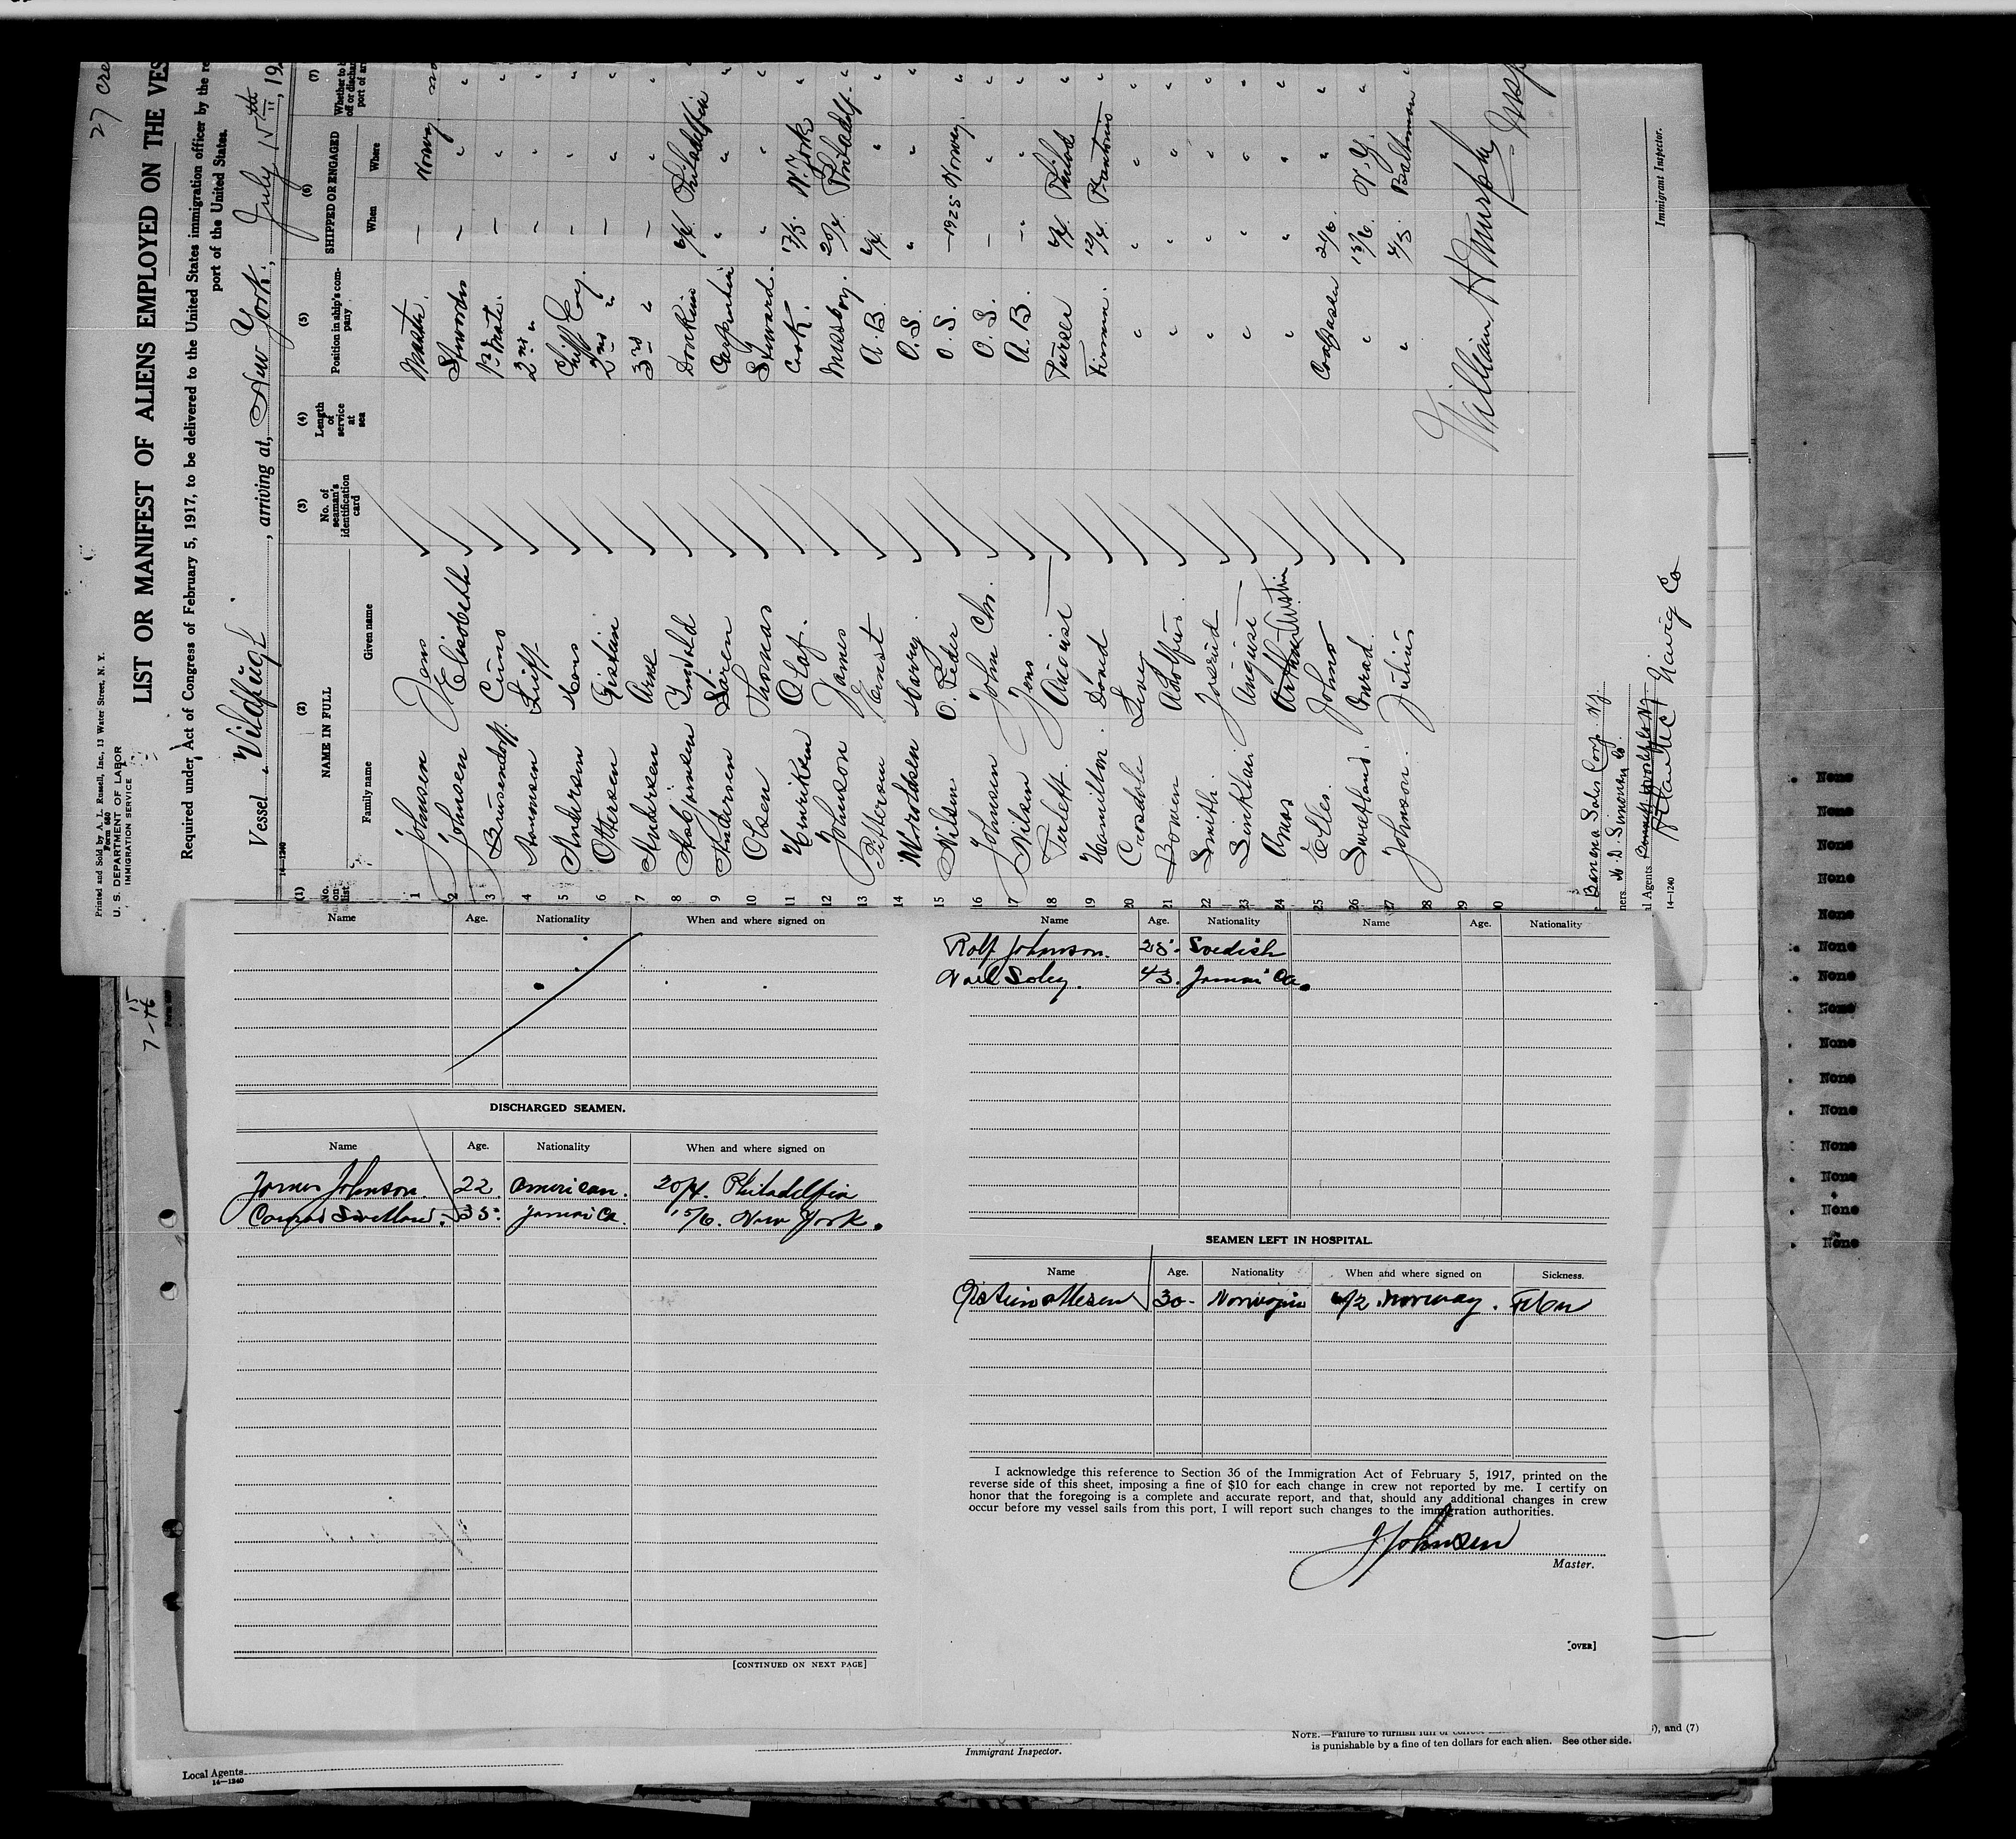 27
Printed and Sold by A. L. Russell, Inc., 13 Water Street, N. Y.
Form 680
U. S. DEPARTMENT OF LABOR
IMMIGRATION SERVICE
LIST OR MANIFEST OF ALIENS EMPLOYED ON THE VES
Required under Act of Congress of February 5, 1917, to be delivered to the United States immigration officer by the re
port of the United States.
Vessel Vildfugl, arriving at, New York, July 15th, 19
14—1240
(1) (2) (3) (4) (5) (6) (7)
No. on list NAME IN FULL No. of seaman's identification card Length of service at sea Position in ship's company SHIPPED OR ENGAGED
Family name Given name When Where
1 Johnsen Jens Master. — Norway
2 Johnsen Elisabeth — "
3 Cuno 1st Mate. — "
4 Leiff 2nd " — "
5 Andersen Mons Chiff Eng. — "
6 Ottersen Gistein 2nd " — "
7 Andersen Arne 3rd " — "
8 6/4. Philadelfia
9 Andersen Sören " "
10 Olsen Thomas Steward. " "
11 Henriksen Olaf. Cook. 17/5. N. York
12 Johnson James Messboy. 20/4. Philadelf.
13 Ernst A. B. 6/4. "
14 Harry O. S. " "
15 Nilsen O. Peder O. S. —1925 Norway.
16 Johnsen John Chr. O. S. — "
17 Nilsen Jens A. B. — "
18 August 6/4. Philad
19 Hamilton. David Fireman. 12/4.
20 " " "
21 Bowen Adolfus " " "
22 Smith. Joseph " " "
23 Sinklair August " " "
24 Amos Arthur Austin " " "
25 Johno 2/6. "
26 Sweetland. Conrad " 15/6. N. Y.
27 Johnson. Julius " 4/5 Baltimore
28
29
William H Murphy
Immigrant Inspector.
Banana Sales Corp. N.Y.
Atlantic Navig Co
14—1240
7-16
Name Age. Nationality When and where signed on
DISCHARGED SEAMEN.
Name Age. Nationality When and where signed on
James Johnson. 22. American. 20/4. Philadelfia
Conrad Sweetland. 35. Jamaica. 15/6. New York.
[CONTINUED ON NEXT PAGE]
Name Age. Nationality Name Age. Nationality
Rolf Johnson. 28. Swedish
Soley. 43. Jamaica.
SEAMEN LEFT IN HOSPITAL.
Name Age. Nationality When and where signed on Sickness.
30 Norway. Feber
I acknowledge this reference to Section 36 of the Immigration Act of February 5, 1917, printed on the
reverse side of this sheet, imposing a fine of $10 for each change in crew not reported by me. I certify on
honor that the foregoing is a complete and accurate report, and that, should any additional changes in crew
occur before my vessel sails from this port, I will report such changes to the immigration authorities.
J Johnsen
Master.
[OVER]
None
None
None
None
None
None
None
None
None
None
None
None
None
None
None
Local Agents
14—1240
Immigrant Inspector.
NOTE.—Failure to furnish full or correct
), and (7)
is punishable by a fine of ten dollars for each alien. See other side.